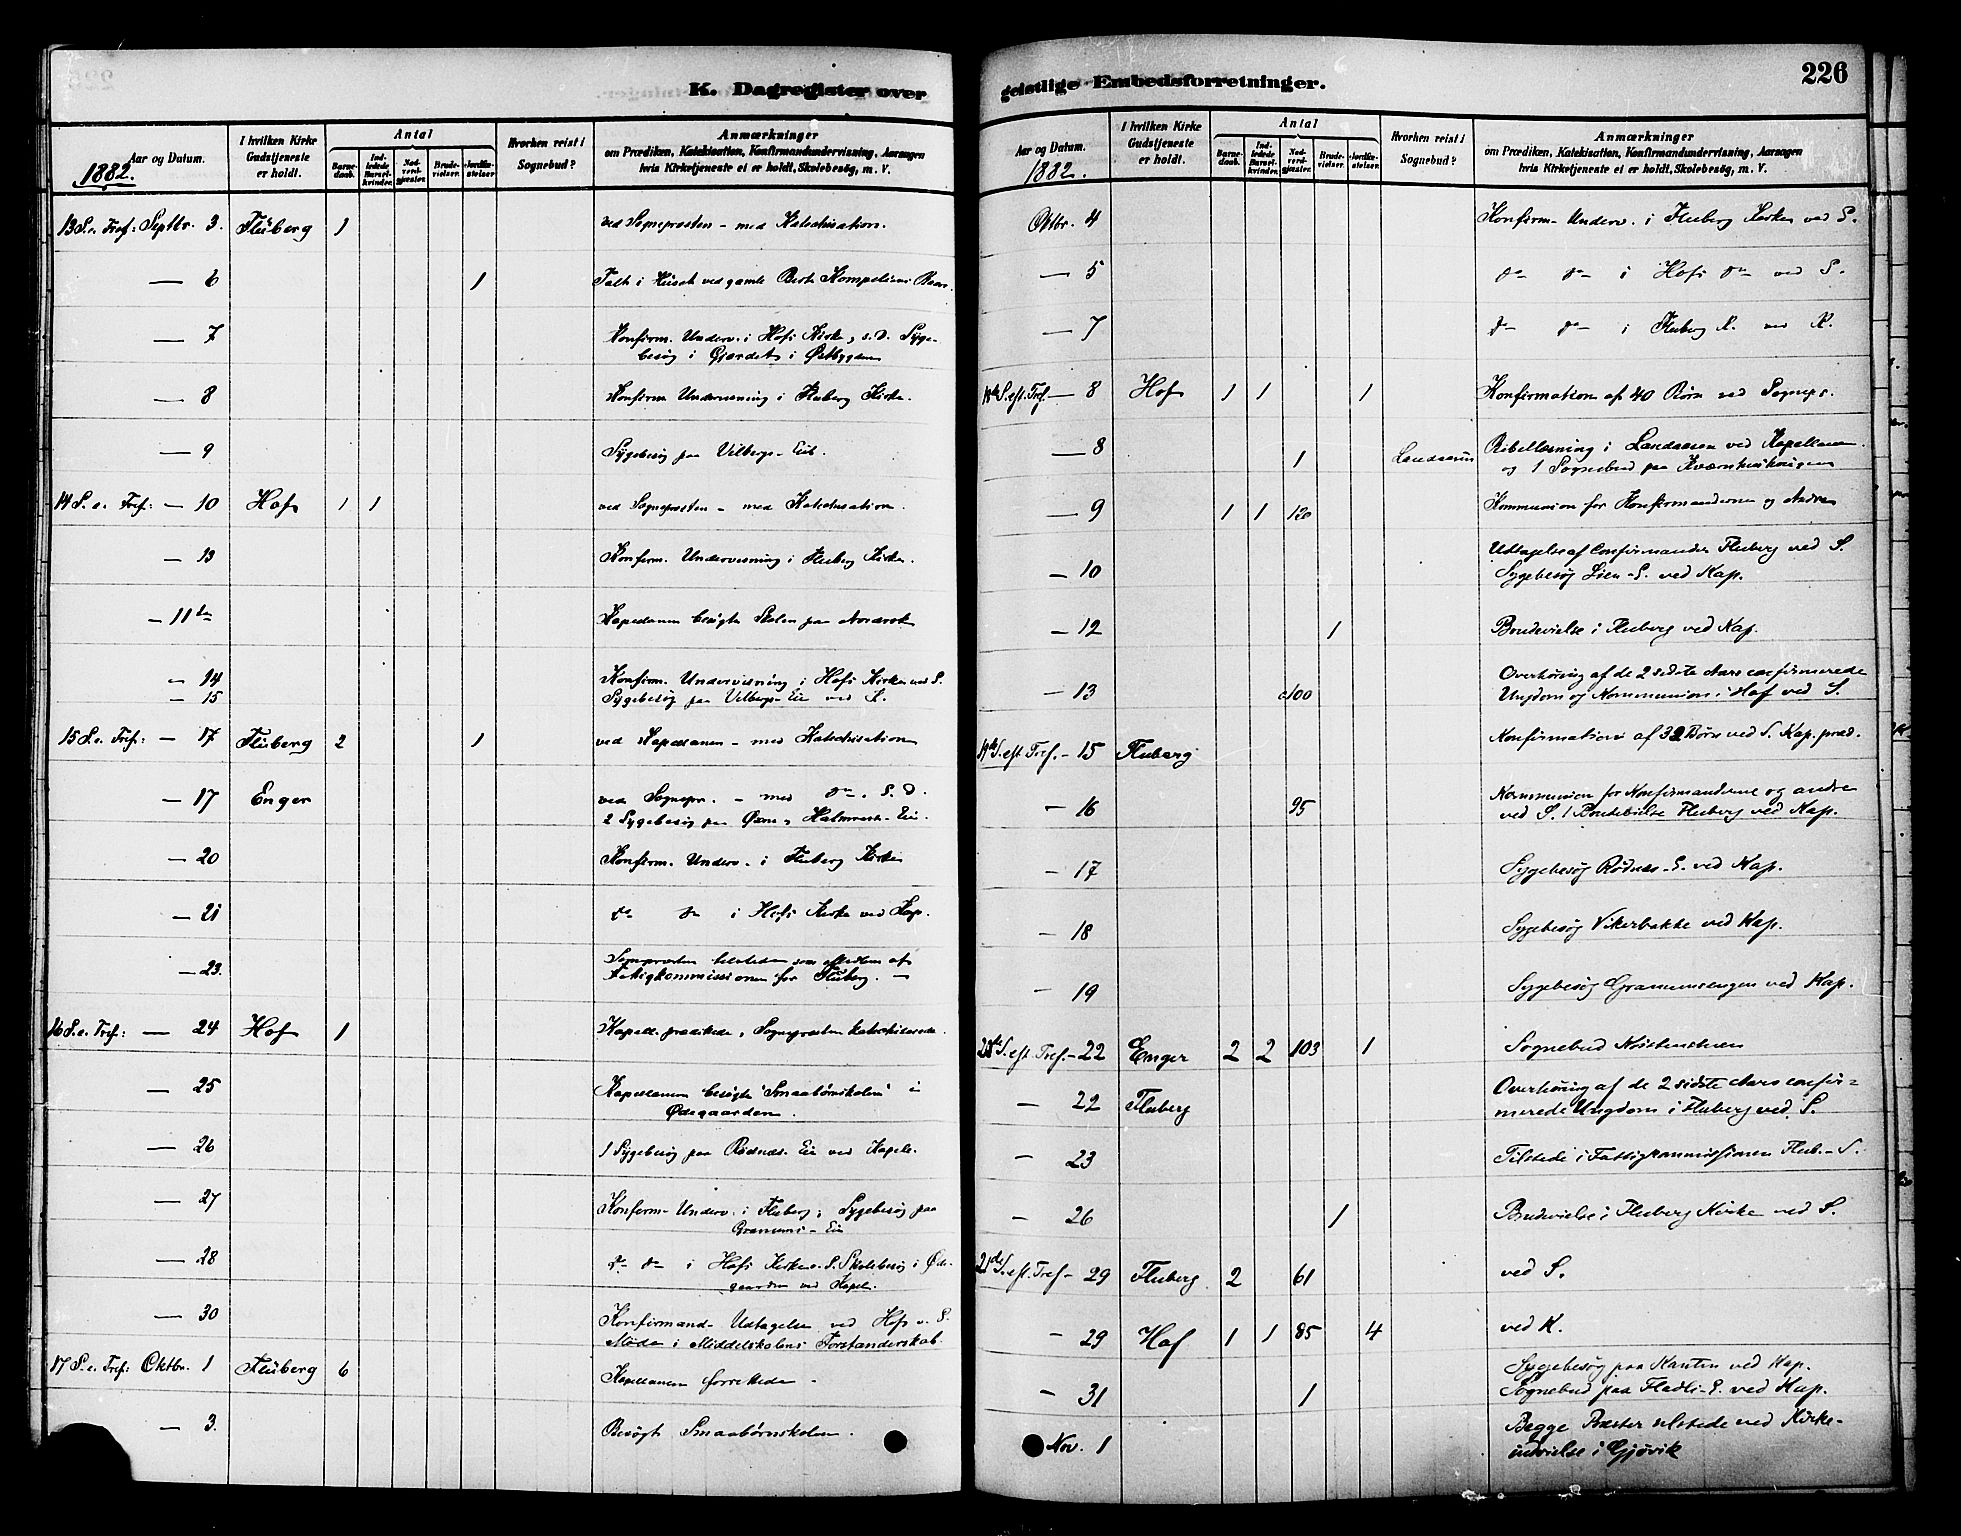 K. Dagregister over
Aar og Datum.
1882.
I hvilken Kirke Gudstjeneste er holdt.
Antal
Barnedaab.
Indledede Barselkvinder.
Nadverdgjæster.
Brudevielser.
Jordfæstelser.
Hvorhen reist i Sognebud?
Anmærkninger
om Prædiken, Katekisation, Konfirmandundervisning, Aarsagen
hvis Kirketjeneste ei er holdt, Skolebesøg, m. V.
13 S. e. Tref: Septbr. 3. Fluberg 1 ved Sognepresten – med Katechisation.
— 6 1 Talt i Huset ved gamle
— 7 Konfirm. Underv. i Hofs Kirke, s. D. Syge-
besøg i Gjærdet i Østbygden
— 8 Konfirm Undervisning i Fluberg Kirke.
— 9 Sygebesøg paa Vilbergs-Eie.
14 S. e. Tref: — 10 Hof 1 1 ved Sognepresten – med Katechisation.
— 13 Konfirm. Undervisning i Fluberg Kirke.
— 11te Kapellanen besøgte Skolen paa
— 14 Konfirm. Undervisning i Hofs Kirke ved S.
— 15 Sygebesøg paa Vilbergs-Eie ved S.
15 S. e. Tref: — 17 Fluberg 2 1 ved Kapellanen – med Katechisation
— 17 Enger ved Sognepr. – med do. S. D.
2 Sygebesøg paa
— 20 Konfirm. Underv. i Fluberg Kirke
— 21 do do i Hofs Kirke ved Kap.
— 23. Sognepresten tilstede som Medlem af
Fattigkommissionen for Fluberg. —
16 S. e. Tref: — 24 Hof 1 Kapell. prædikede, Sognepresten katechiserede.
— 25 Kapellanen besøgte "Smaabørnskolen" i
Ødegaarden.
— 26 1 Sygebesøg paa Rødnæs-Eie ved Kapell.
— 27 Konferm-Underv. i Fluberg; Sygebesøg paa
Granums-Eie
— 28 do do i Hofs Kirke v. S. Skolebesøg i Øde-
gaarden ved Kapel.
— 30 Konfirmand-Udtagelse ved Hof v. S.
Møde i Middelskolens Forstanderskab.
17 S. e. Tref: Oktbr. 1 Fluberg 6 Kapellanen forrettede –
— 3. Besøgt Smaabørnskolen.
geistlige Embedsforretninger.
226
Aar og Datum.
1882.
I hvilken Kirke Gudstjeneste er holdt.
Antal
Barnedaab.
Indledede Barselkvinder.
Nadverdgjæster.
Brudevielser.
Jordfæstelser.
Hvorhen reist i Sognebud?
Anmærkninger
om Prædiken, Katekisation, Konfirmandundervisning, Aarsagen
hvis Kirketjeneste ei er holdt, Skolebesøg, m. V.
Oktbr. 4 Konfirm-Underv. i Fluberg Kirke ved S.
— 5 do do i Hofs do ved S.
— 7 do do i Fluberg K. ved K.
18de S. eft. Tref. — 8 Hof 1 1 1 Konfirmation af 40 Børn ved Sognepr.
— 8 1 Landaasen Bibellæsning i Landaasen ved Kapellanen
og 1 Sognebud paa
— 9 1 1 120 Kommunion for Konfirmanderne og Andre
— 10 Udtagelse af Confirmander Fluberg ved S.
Sygebesøg Lien-E. ved Kap.
— 12 1 Brudevielse i Fluberg ved Kap.
— 13 100 Overhøring af de 2 sidste Aars confirmerede
Ungdom og Kommunion i Hof ved S.
19de S. eft. Tref. — 15 Fluberg Konfirmation af 32 Børn ved S. Kap. præd.
— 16 95 Kommunion for Konfirmanderne og andre
ved S. 1 Brudevielse Fluberg ved Kap.
— 17 Sygebesøg Rødnæs-E. ved Kap.
— 18 Sygebesøg Vikerbakke ved Kap.
— 19 Sygebesøg Granumsengen ved Kap.
20de S. eft. Tref. — 22 Enger 2 2 103 1 Sognebud
— 22 Fluberg Overhøring af de 2 sidste Aars confir-
merede Ungdom i Fluberg ved S.
— 23 Tilstede i Fattigkommissionen Flub. – S.
— 26 1 Brudevielse i Fluberg Kirke ved S.
21de S. eft. Tref. — 29 Fluberg 2 61 ved S.
— 29 Hof 1 1 85 4 ved K.
Sygebesøg paa Kanten ved Kap.
— 31 1 Sognebud paa Fladli-E. ved Kap.
Nov. 1 Begge Præster tilstede ved Kirke-
indvielse i Gjøvik